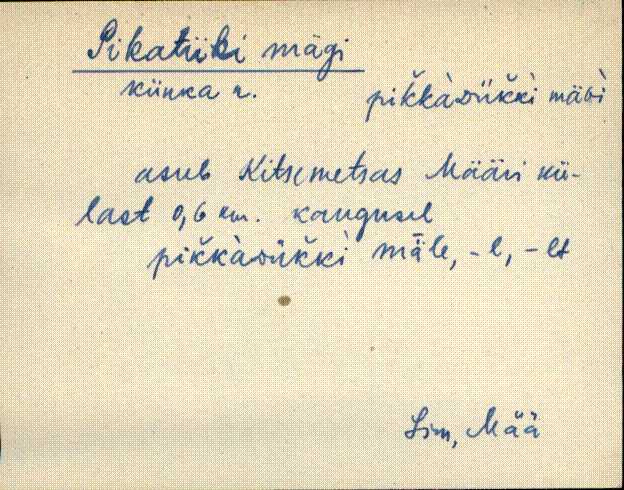 Pikatiiki mägi
künka n.
pikkàDŭkkì mäGi
asub Kitsemetsas Määri kü-
last 0,6 km. kaugusel
pikkàDŭkkì mäle, -l, -lt
Sim, Mää